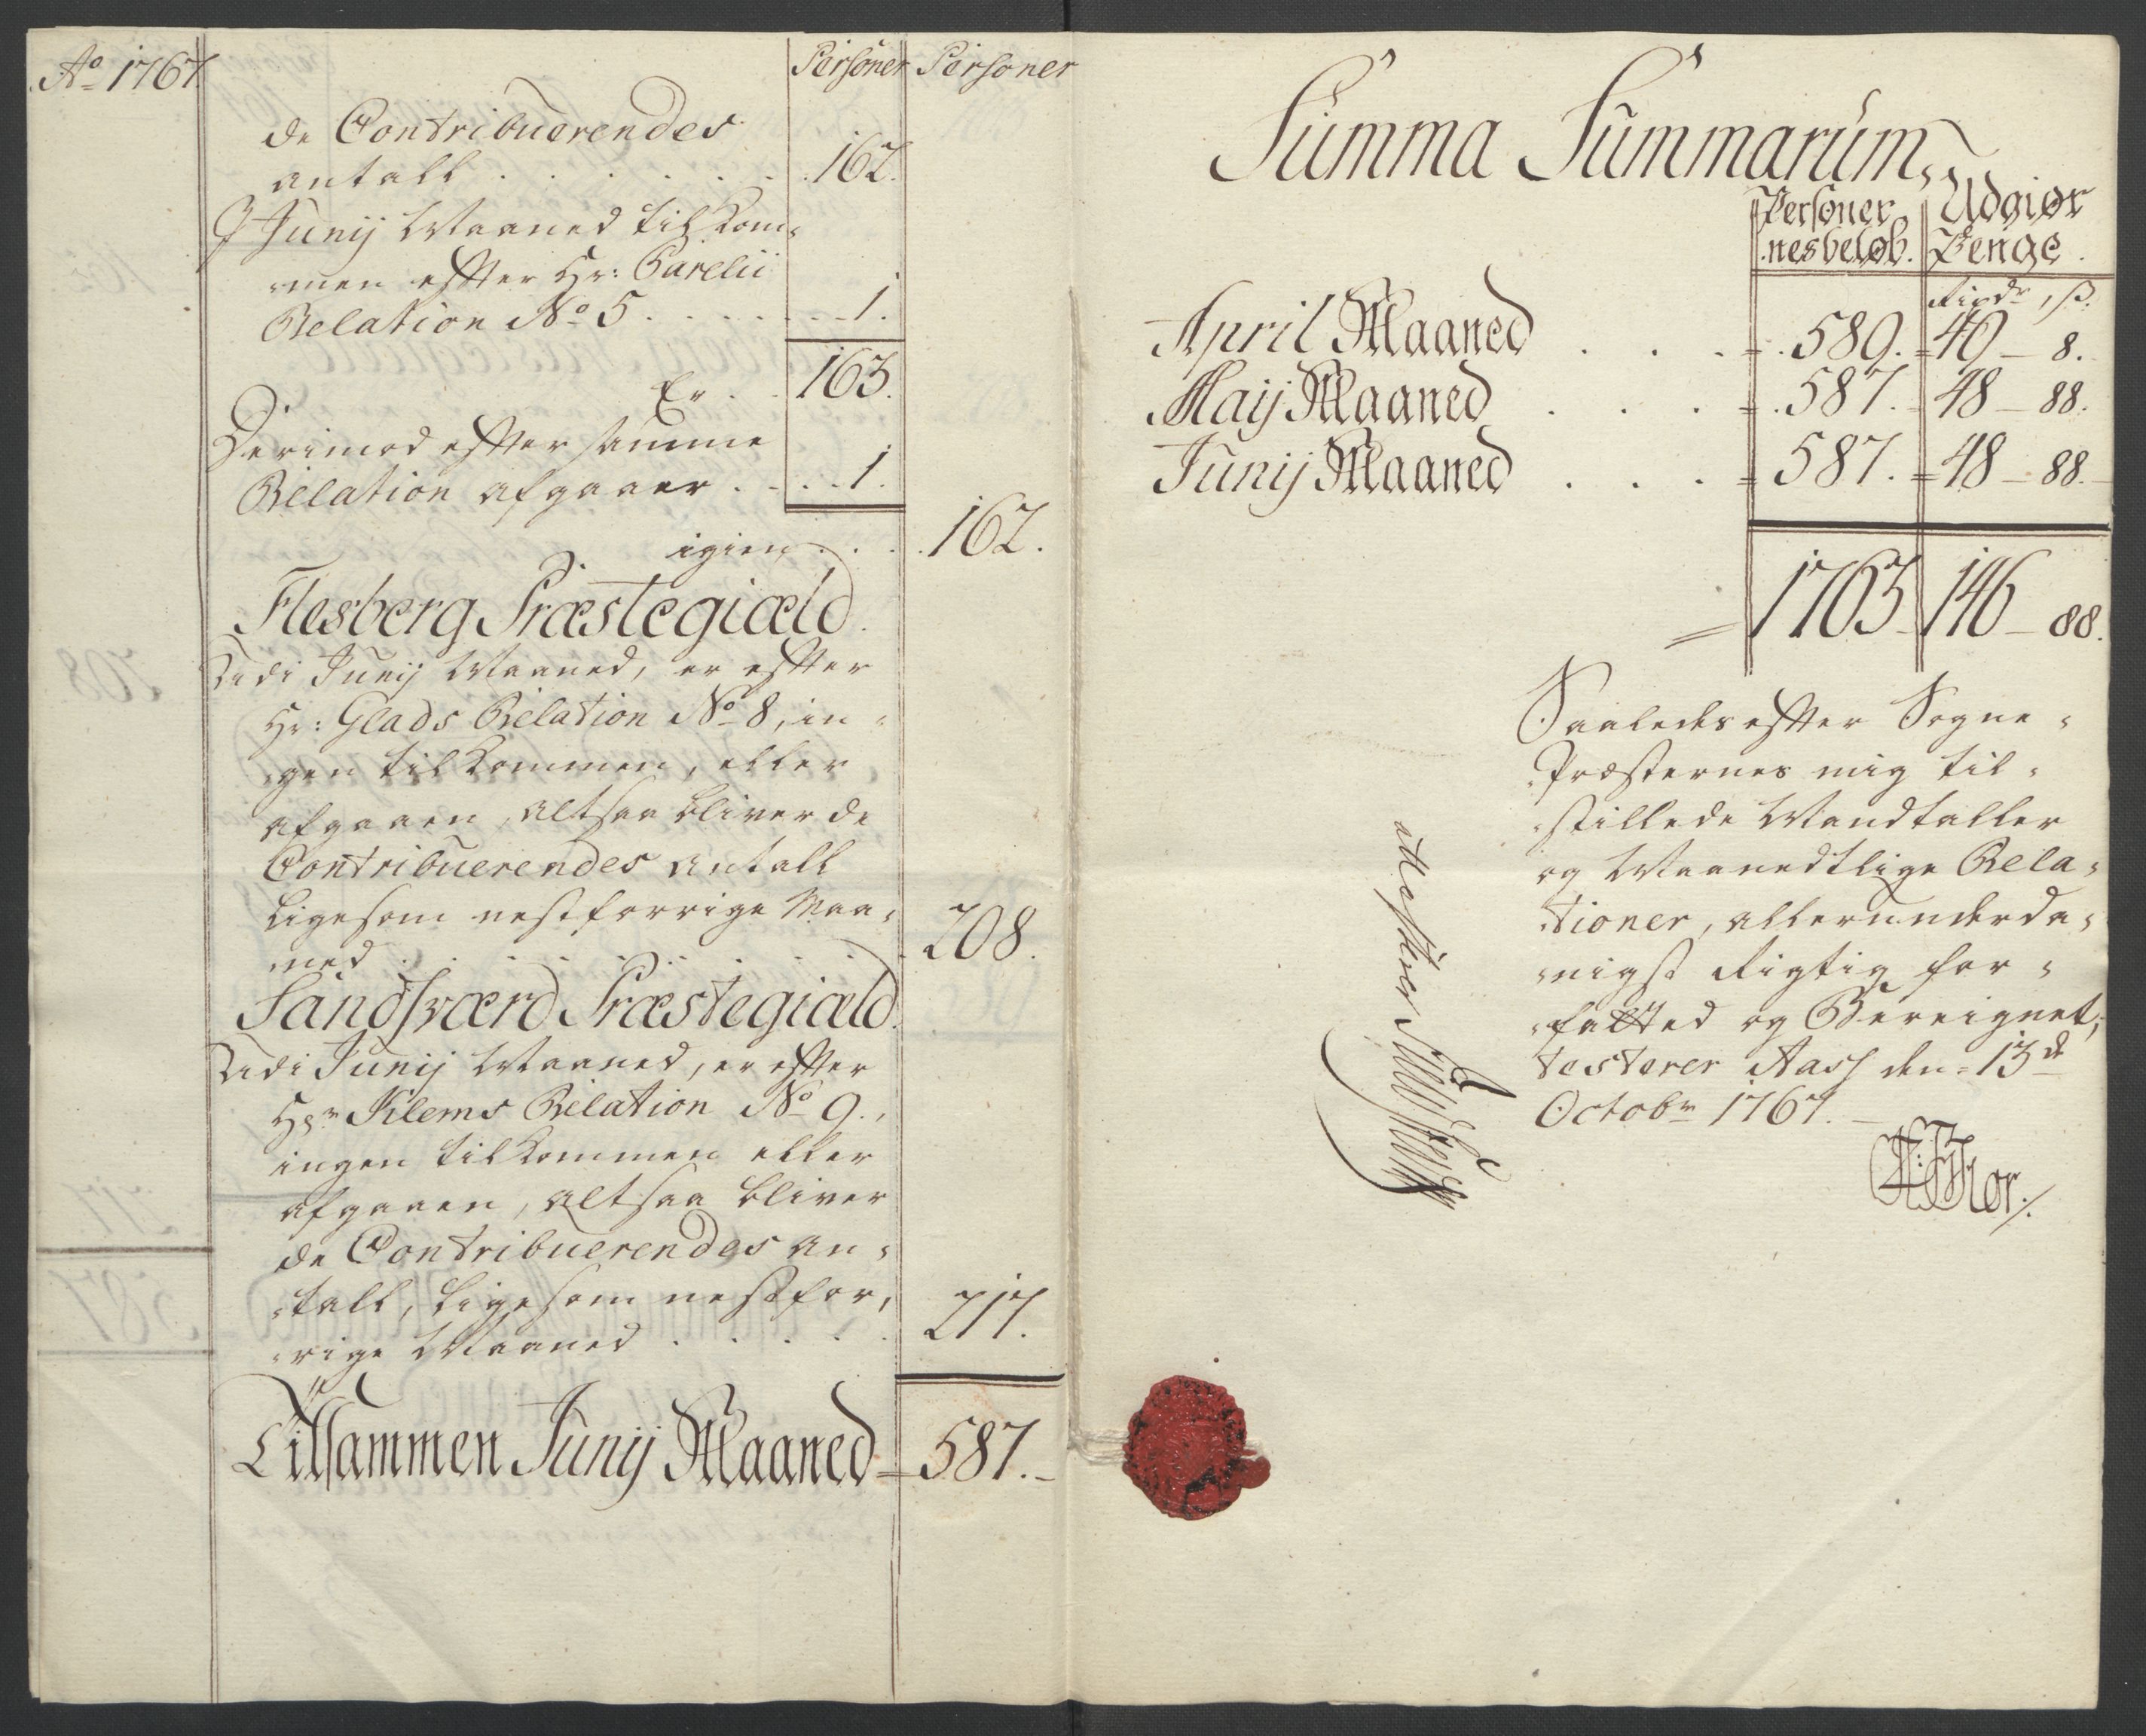 Ao 1767.
Personer Personer
de Contribuerendes
antall . . . . . . 162.
I Junij Maaned tilkom-
men effter Hr: Carelii
Relation No 5 . . . . . . 1.
Er . . 163.
Derimod effter samme
Relation afgaaer . . . . 1.
igien . . . . 162.
Flesberg Præstegiæld.
Udi Junij Maaned, er effter
Hr: Glads Relation No 8, in-
gen tilkommen, eller
afgaaen, altsaa bliver de
Contribuerendes antall
ligesom nestforrige Maa-
ned . . . . . . . . . 208.
Sandsværd Præstegiæld.
Udi Junij Maaned, er effter
Hrr Klems Relation No 9.,
ingen tilkommen eller
afgaaen, altsaa bliver
de Contribuerendes an-
tall, ligesom nestfor-
rige Maaned . . . . . 217.
Tilsammen Junij Maaned = 587.-
Summa Summarum,
Personer Udgiør
nesbeløb. Penge.
Rixdr, ß.
April Maaned . . . = 589. = 49 - 8.
Maij Maaned . . . = 587. = 48 - 88.
Junij Maaned . . . = 587. = 48 - 88.
= 1763 146 - 88.
Saaledes effter Sogne-
Præsternes mig til-
stillede Mandtaller
og Maanedtlige Rela-
tioner, allerunderda-
nigst Rigtig for-
fatted og Bereignet,
testerer Aass den 13de
Octobr 1767.
attesterer